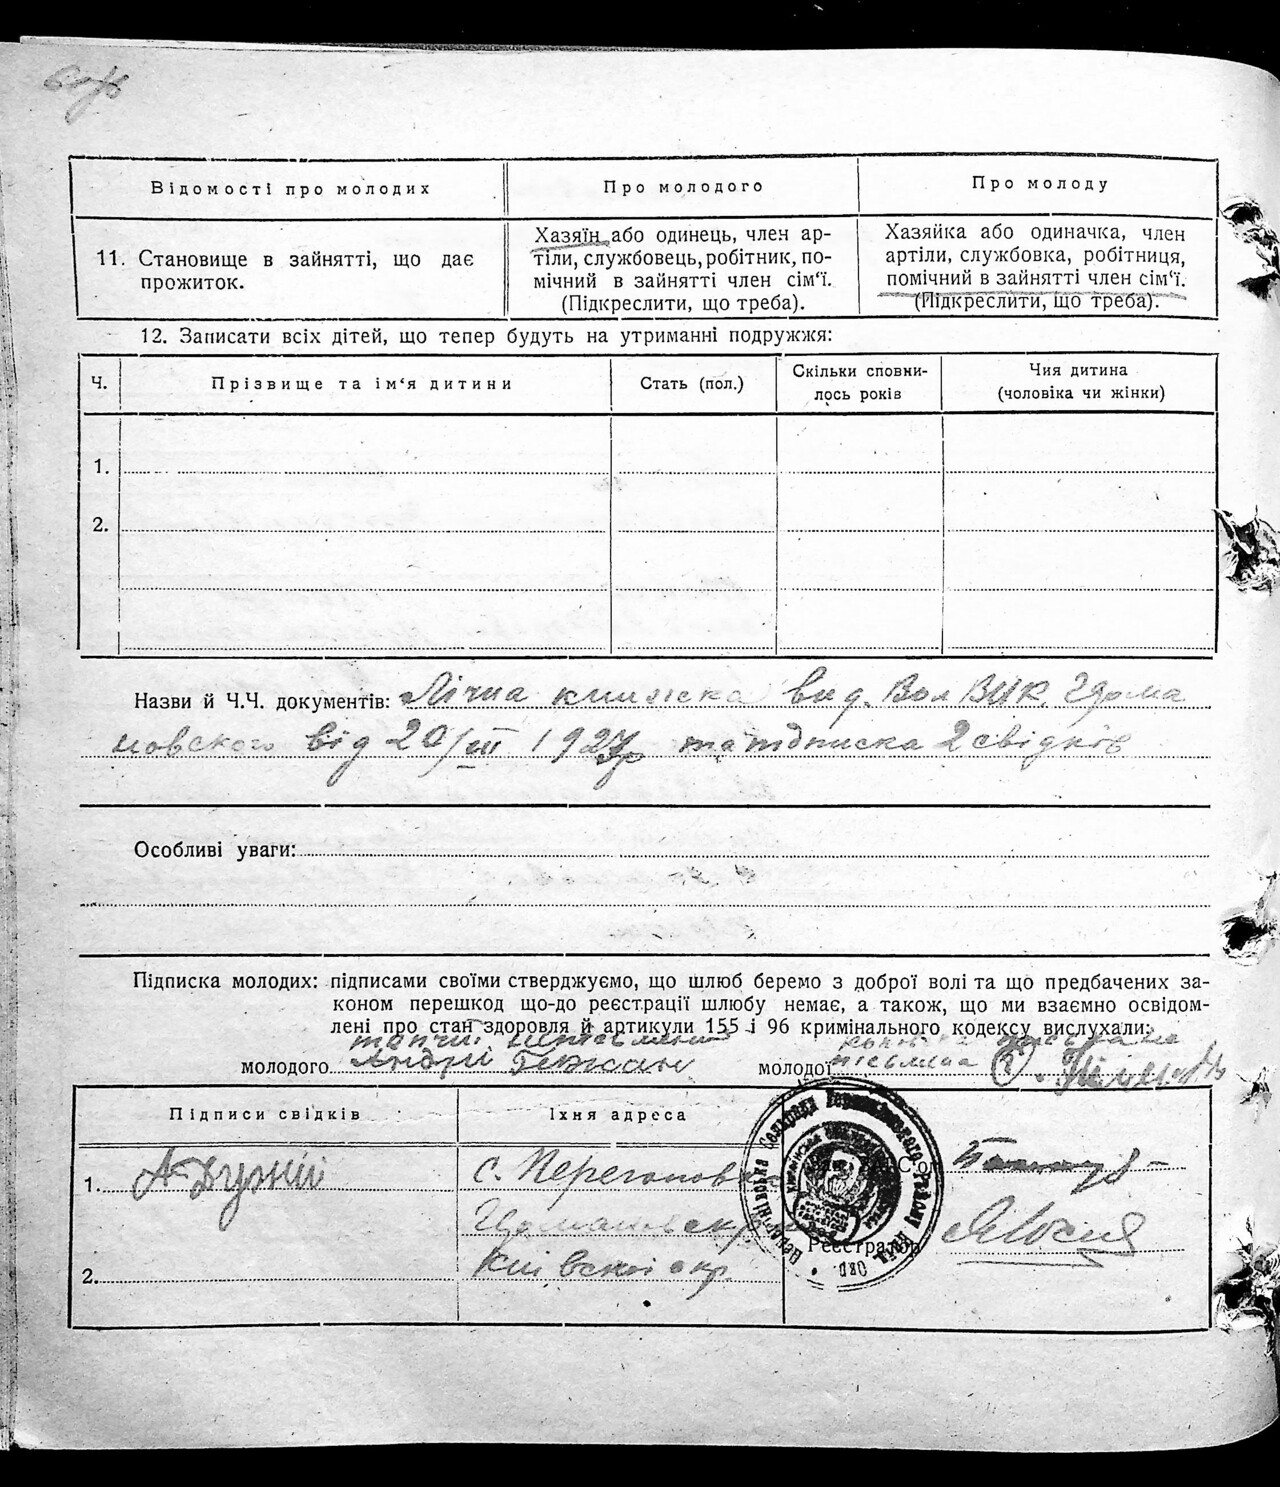 Відомості про молодих
Про молодого
Про молоду
11. Становище в зайнятті, що дає
прожиток.
Хазяїн або одинець, член ар-
тіли, службовець, робітник, по-
мічний в зайнятті член сім‘ї.
(Підкреслити, що треба).
Хазяйка або одиначка, член
артіли, службовка, робітниця,
помічний в зайнятті член сім‘ї.
(Підкреслити, що треба).
12. Записати всіх дітей, що тепер будуть на утриманні подружжя:
Ч.
Прізвище та ім‘я дитини
Стать (пол.)
Скільки сповни-
лось років
Чия дитина
(чоловіка чи жінки)
1.
2.
Назви й Ч.Ч. документів: Лічна книжка вид. Вол ВИК. Гярма
новского від 20/III 1927р та підписка 2 свідків
Особливі уваги:
Підписка молодих: підписами своїми стверджуємо, що шлюб беремо з доброї волі та що предбачених за-
коном перешкод що-до реєстрації шлюбу немає, а також, що ми взаємно освідом-
лені про стан здоровля й артикули 155 і 96 кримінального кодексу вислухали:
молодого Андрій
молодої
Підписи свідків
Їхня адреса
1.
с.
Київської окр.
2.
Реєстратор